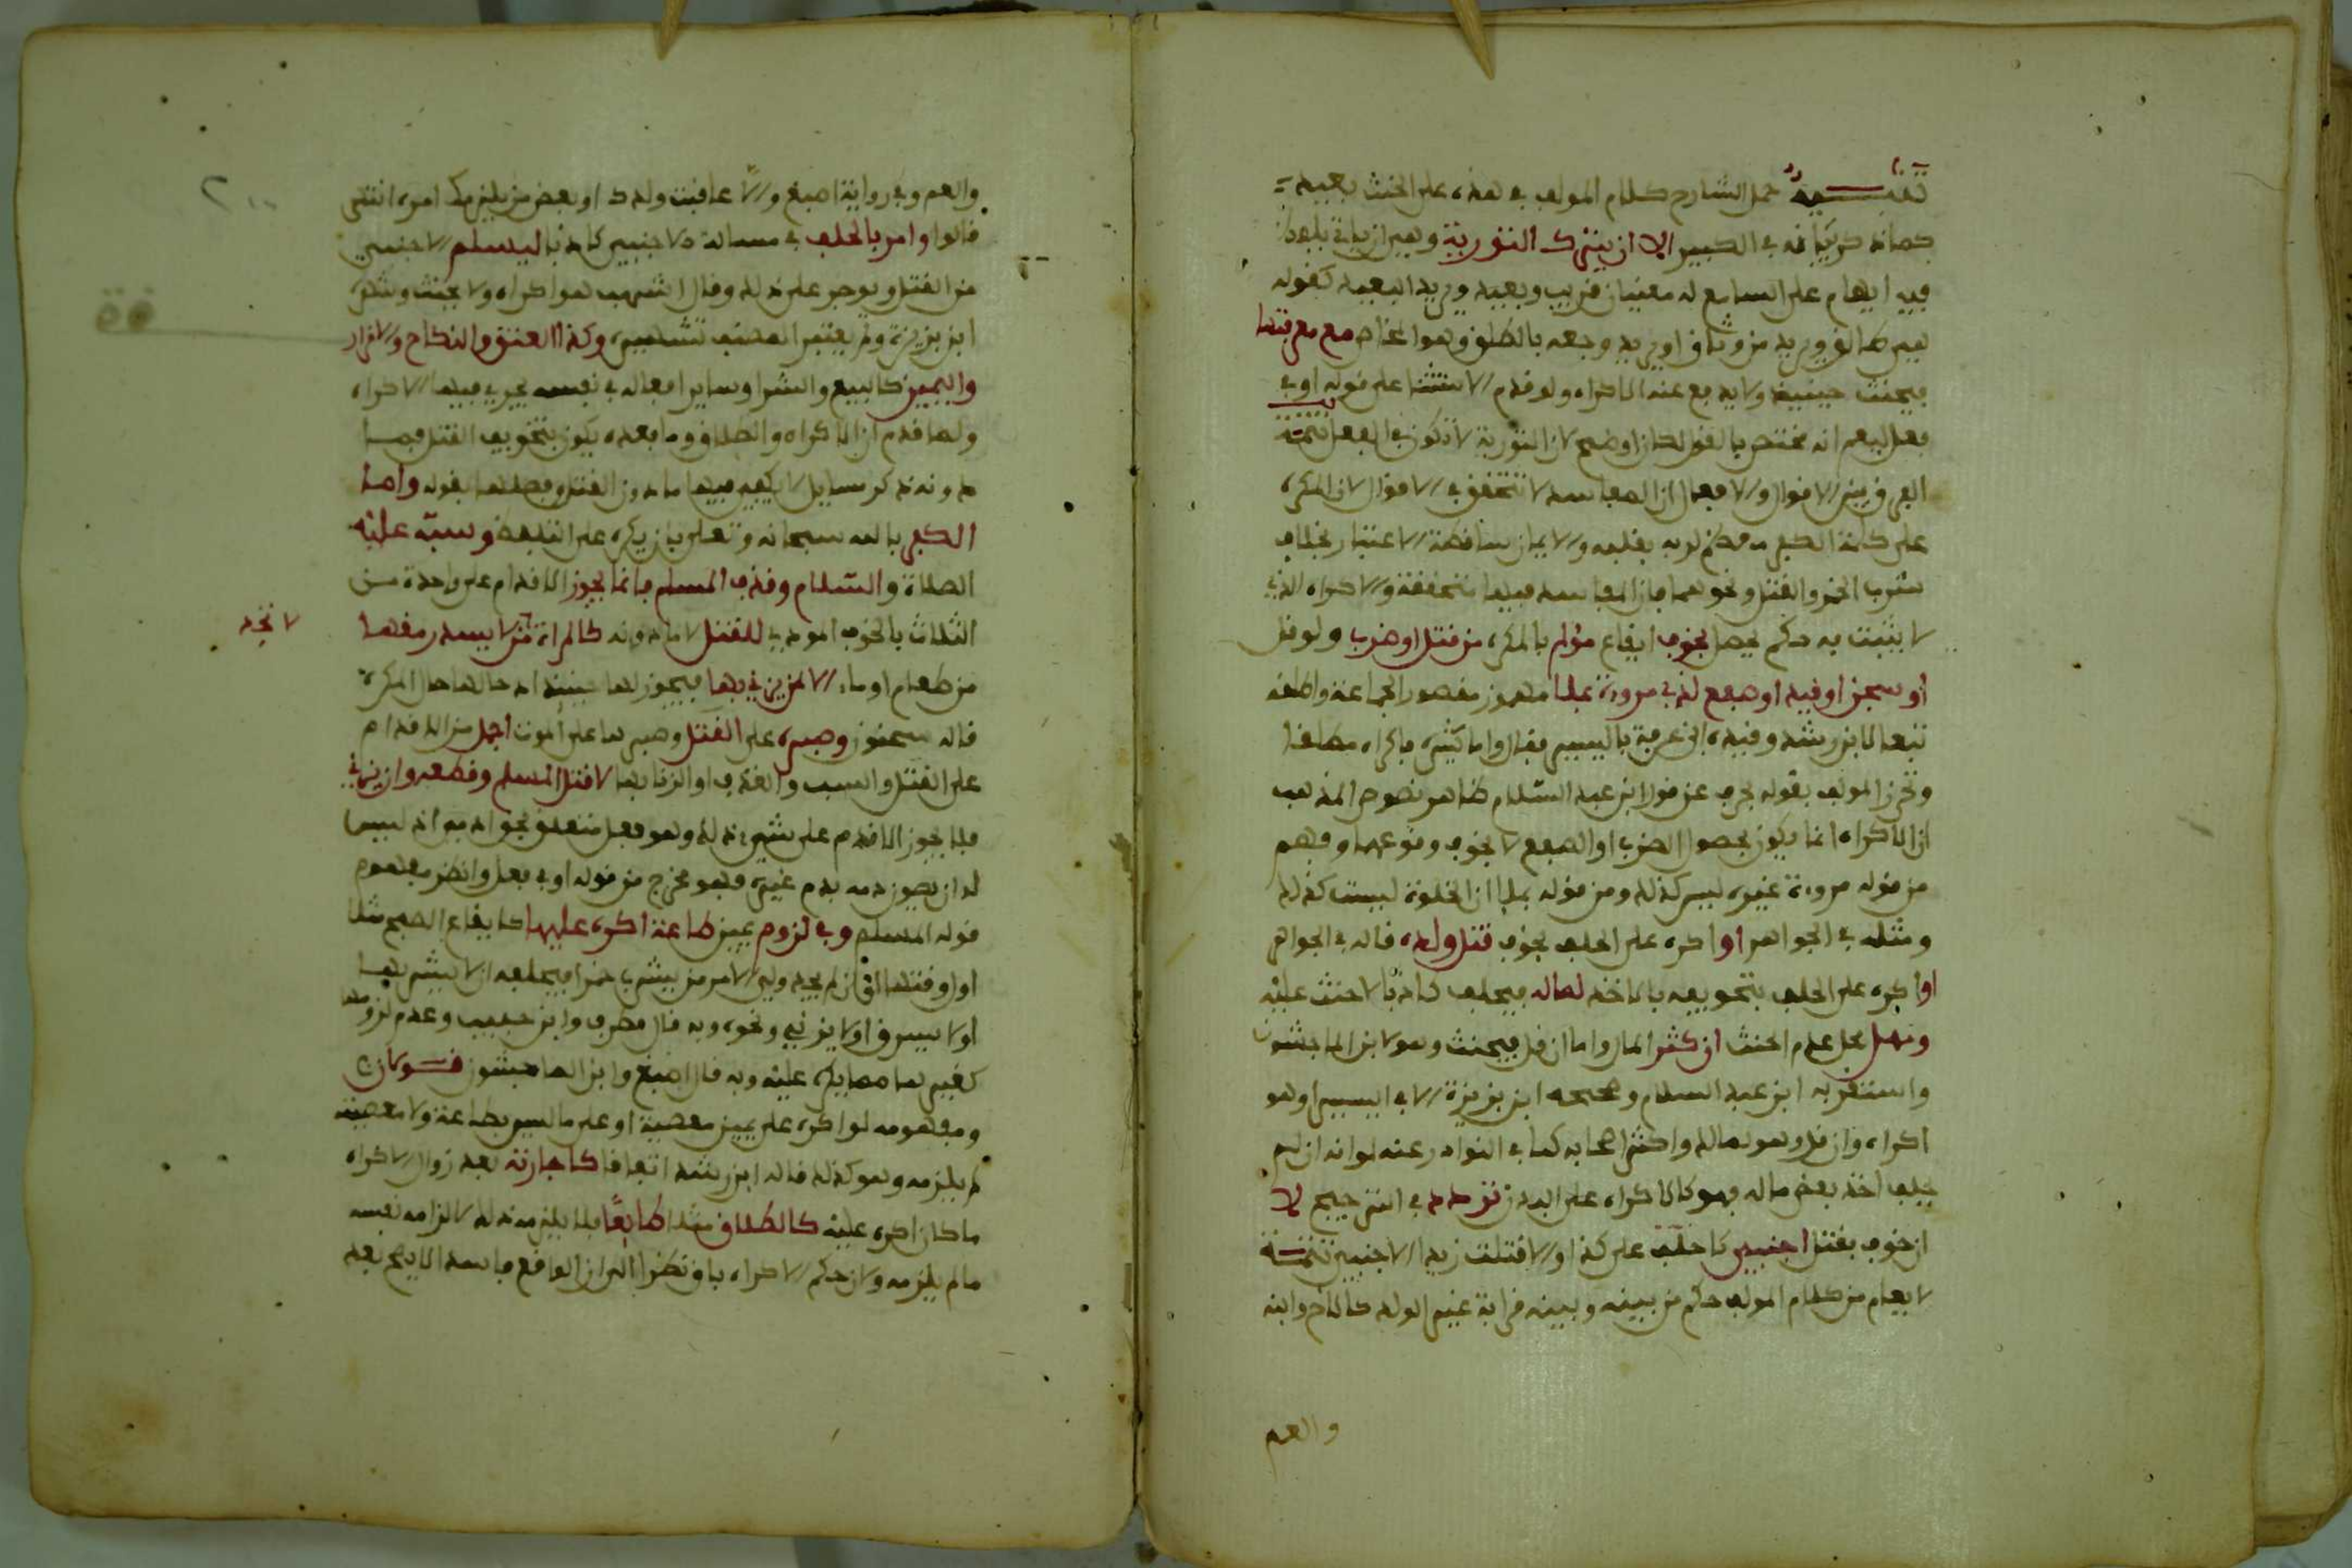 تنبيه حمل الشارح كلام المولف في هذه على الحنث بعيد
كما نه في الكبير الا ان يترك التورية وهي ان ياتي بلفظ
فيه ايهام على السامع له معنيان قريب وبعيد ويريد البعيد كقوله
هي طالق ويريد من وثاق او يريد وجعه بالطلق وهو المخاض مع معرفتها
فيحنث حينيذ ولا يدفع عنه الاكراه ولو قدم الاستثنا على قوله او في
فعل ليعلم انه مختص بالقول لكان اوضح لان التورية لا تكون في الفعل تتمة
الفرق بين الاقوال والافعال ان المفاسد لا تتحقق في الاقوال لان المكره
على كلمة الكفر معظم لربه بقلبه والايمان ساقطة الاعتبار بخلاف
شرب الخمر والقتل ونحوهما فان المفاسد فيها متحققة والاكراه الذي
لا يثبت به حكم يحصل بخوف ايقاع مؤلم بالمكره من قتل او ضرب ولو قل
او سجن او قيد او صفع لذي مروءة بملا مهموز مقصور الجماعة واطلقه
تبعا لابن رشد وقيده ابن عرفة باليسير فقال واما كثيره فاكراه مطلقا
وتحرز المولف بقوله بخوف عن قول ابن عبد السلام ظاهر نصوص المذهب
ان الاكراه انما يكون بحصول الضرب او الصفع لا بخوف وقوعهما وفهم
من قوله مروءة غيره ليس كذلك ومن قوله بملا ان الخلوة ليست كذلك
ومثله في الجواهر او اكره على الحلف بخوف قتل ولده قاله في الجواهر
او اكره على الحلف بتخويفه باخذ لماله فيحلف كاذبا لا حنث عليه
وهل محل عدم الحنث ان كثر المال واما ان قل فيحنث وهو لابن الماجشون
واستقربه ابن عبد السلام وصححه ابن بزيزة الا في اليسير او هو
اكراه وان قل وهو لمالك واكثر اصحابه كما في النوادر عنه لو انه ان لم
يحلف اخذ بعض ماله فهو كالاكراه على البدن تردد في الترجيح لا
ان خوف بقتل اجنبي كاحلف على كذا والا قتلت زيدا الاجنبي تتمة
لا يعلم من كلام المولف حكم من بينه وبينه قرابة غير الولد كالاخ وابنه
والعم
والعم وفي رواية اصبغ والا عاقبت ولدك او بعض من يلزمك امره انتهى
قالوا وامر بالحلف في مسالة الاجنبي كاذبا ليسلم الاجنبي
من القتل ويوجر على ذلك وقال اشهب هو اكراه ولا يحنث وشهره
ابن بزيزة ولم يعتبر المصنف تشهيره وكذا العتق والنكاح والاقرار
واليمين كالبيع والشرا وساير افعاله في نفسه يجري فيها الاكراه
ولما قدم ان الاكراه والطلاق وما بعده يكون بتخويف القتل فما
دونه ذكر مسايل لا يكفي فيها ما دون القتل وفصلها بقوله واما
الكفر بالله سبحانه وتعلى بان يكره على التلفظ وسبه عليه
الصلاة والسلام وقذف المسلم فانما يجوز الاقدام على واحدة من
الثلاث بالخوف المودي للقتل لا ما دونه كالمراة لا يسد رمقها
لا تجد
من طعام او ماء الا لمن يزني بها فيجوز لها حينيذ اذ حالها حال المكره
قاله سحنون وصبره على القتل وصبرها على الموت اجمل من الاقدام
على القتل والسب والقذف او الزنا بها لا قتل المسلم وقطعه وان يزني
فلا يجوز الاقدم على شيء ذلك وهو فعل متعلق بجوارحه اذ ليس
له ان يصون دمه بدم غيره فهو مخرج من قوله او في فعل وانظر مفهوم
قوله المسلم وفي لزوم يمين طاعة اكره عليها كايقاع الصبح مثلا
اول وقتها اذ ان لم يجد ولي الامر من يشرب خمرا فيحلفه ان لا يشربها
او لا يسرق او لا يزني ونحوه وبه قال مطرف وابن حبيب وعدم لزومها
كغيرها مما يكره عليه وبه قال اصبغ وابن الماجشون قولان
ومفهومه لو اكره على يمين معصية او على ما ليس بطاعة ولا معصية
لم يلزمه وهو كذلك قاله ابن رشد اتفاقا كاجازته بعد زوال الاكراه
ما كان اكره عليه كالطلاق مثلا طايعا فلا يلزمه ذلك لالزامه نفسه
ما لم يلزمه ولان حكم الاكراه باق نظرا الى ان الواقع فاسد الا يصح بعد